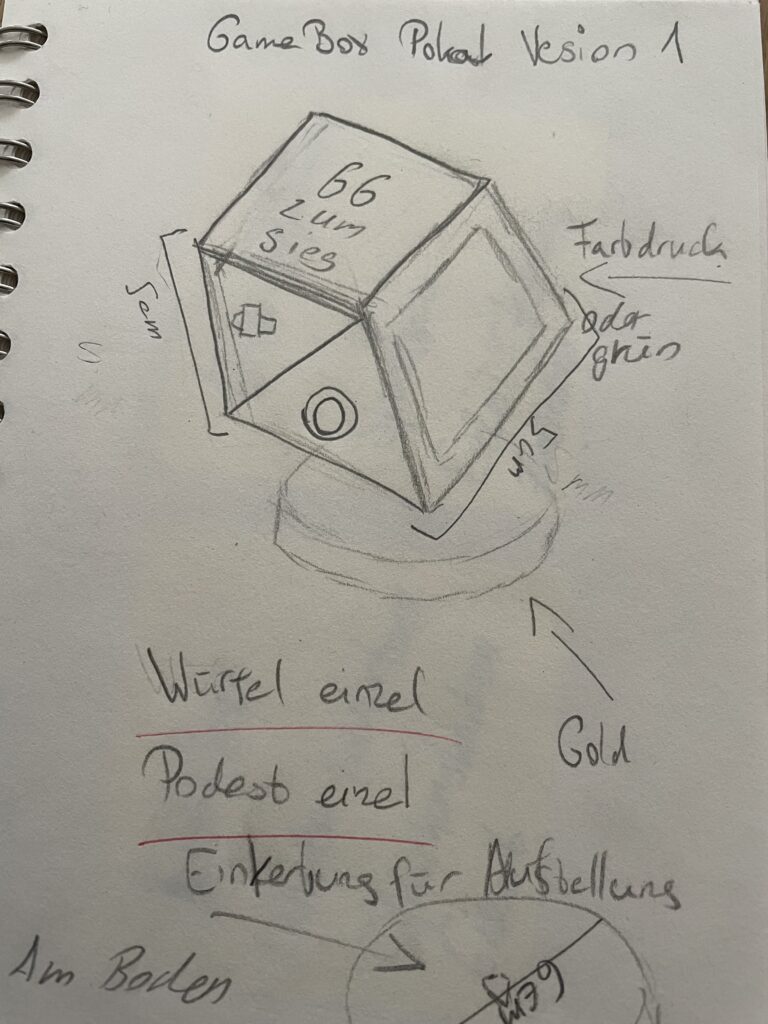 GameBox Pokal Vesion 1
66
zum
sieg
Farbdruck
oder
grün
5cm
5cm
mm
Gold
Würfel einzel
Podest einzel
Einkerbung für Aufstellung
Am Boden
6cm